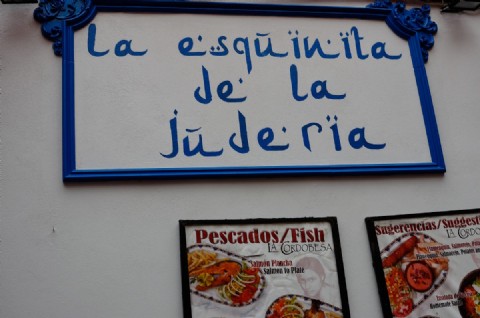 La esquinita
de la
juderia
Pescados/Fish
LA CORDOBESA
Salmón Plancha
Salmon to Plate
Sugerencias/Suggest
LA CORDOBE